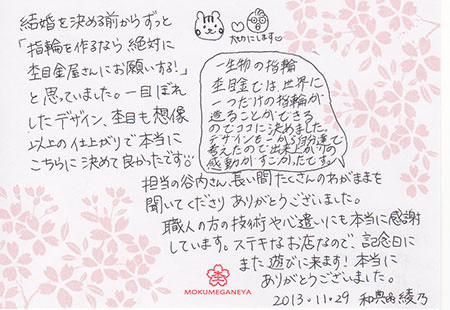 結婚を決める前からずっと
「指輪を作るなら絶対に
杢目金屋さんにお願いする!」
と思っていました。一目ぼれ
したデザイン、杢目も想像
以上の仕上がりで本当に
こちらに決めて良かったです
大切にします
一生物の指輪
杢目金では、世界に
一つだけの指輪が
造ることができる
のでココに決めました
デザインを一から自分達で
考えたので出来上がりの
感動がすごかったです。
担当の谷内さん、長い間たくさんのわがままを
聞いてくださりありがとうございました。
職人の方の技術や心遣いにも本当に感謝
しています。ステキなお店なので、記念日に
また遊びに来ます!本当に
ありがとうございました。
MOKUMEGANEYA
2013.11.29 綾乃